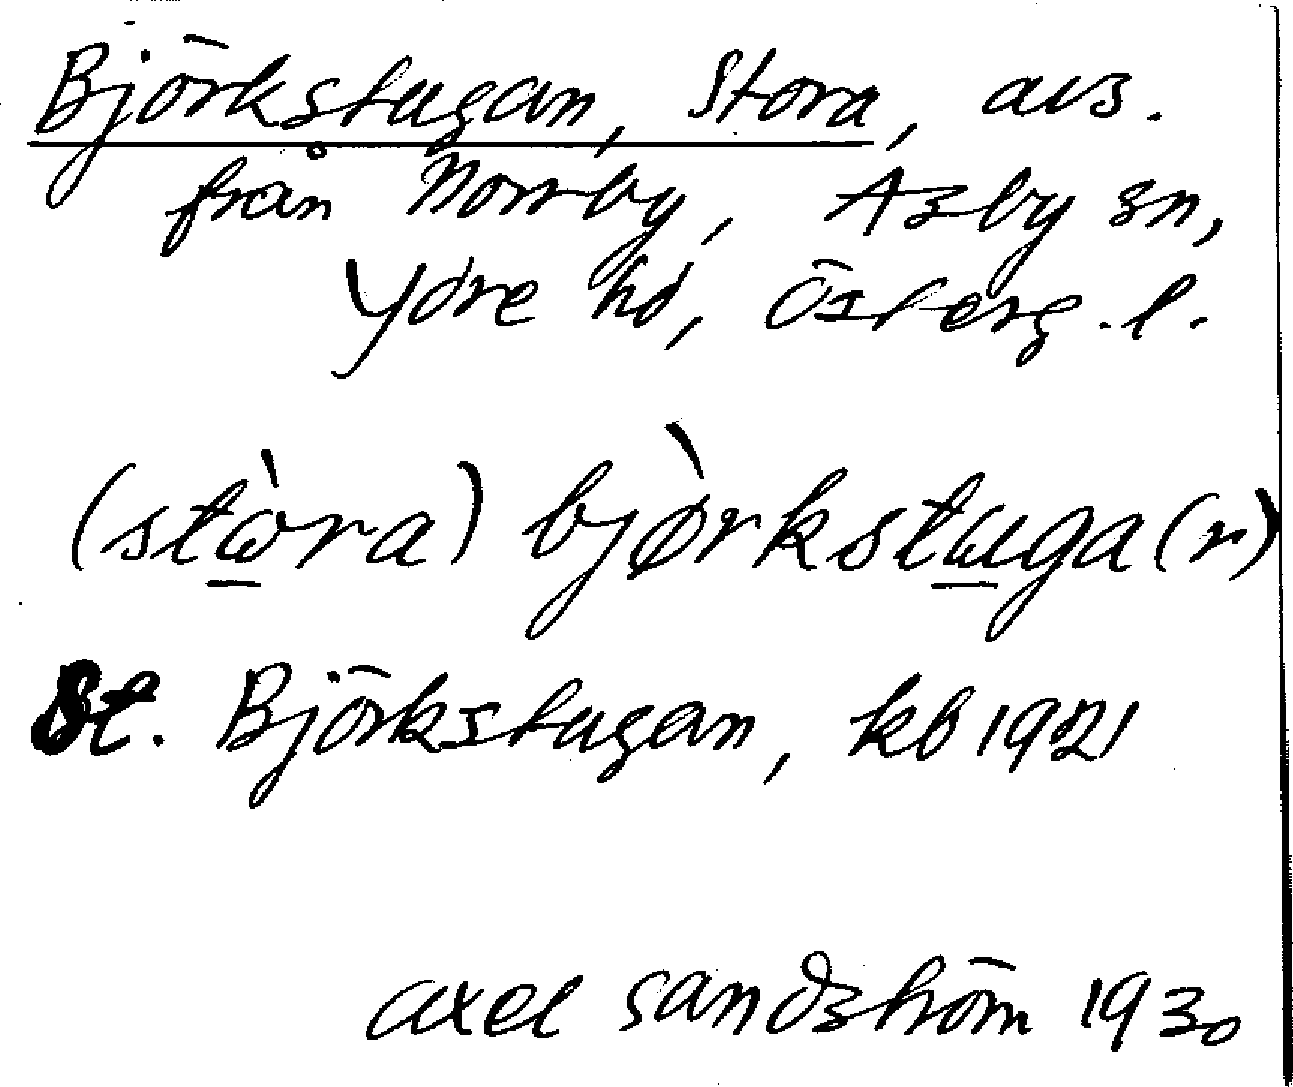 Björkstugan, Stora, avs.
från Norrby, Asby sn,
Ydre hd, Österg. l.
(stὼ̲ra) bjø̀rkstɯ̲ga(n)
St. Björkstugan, kb 1921
Axel Sandström 1930